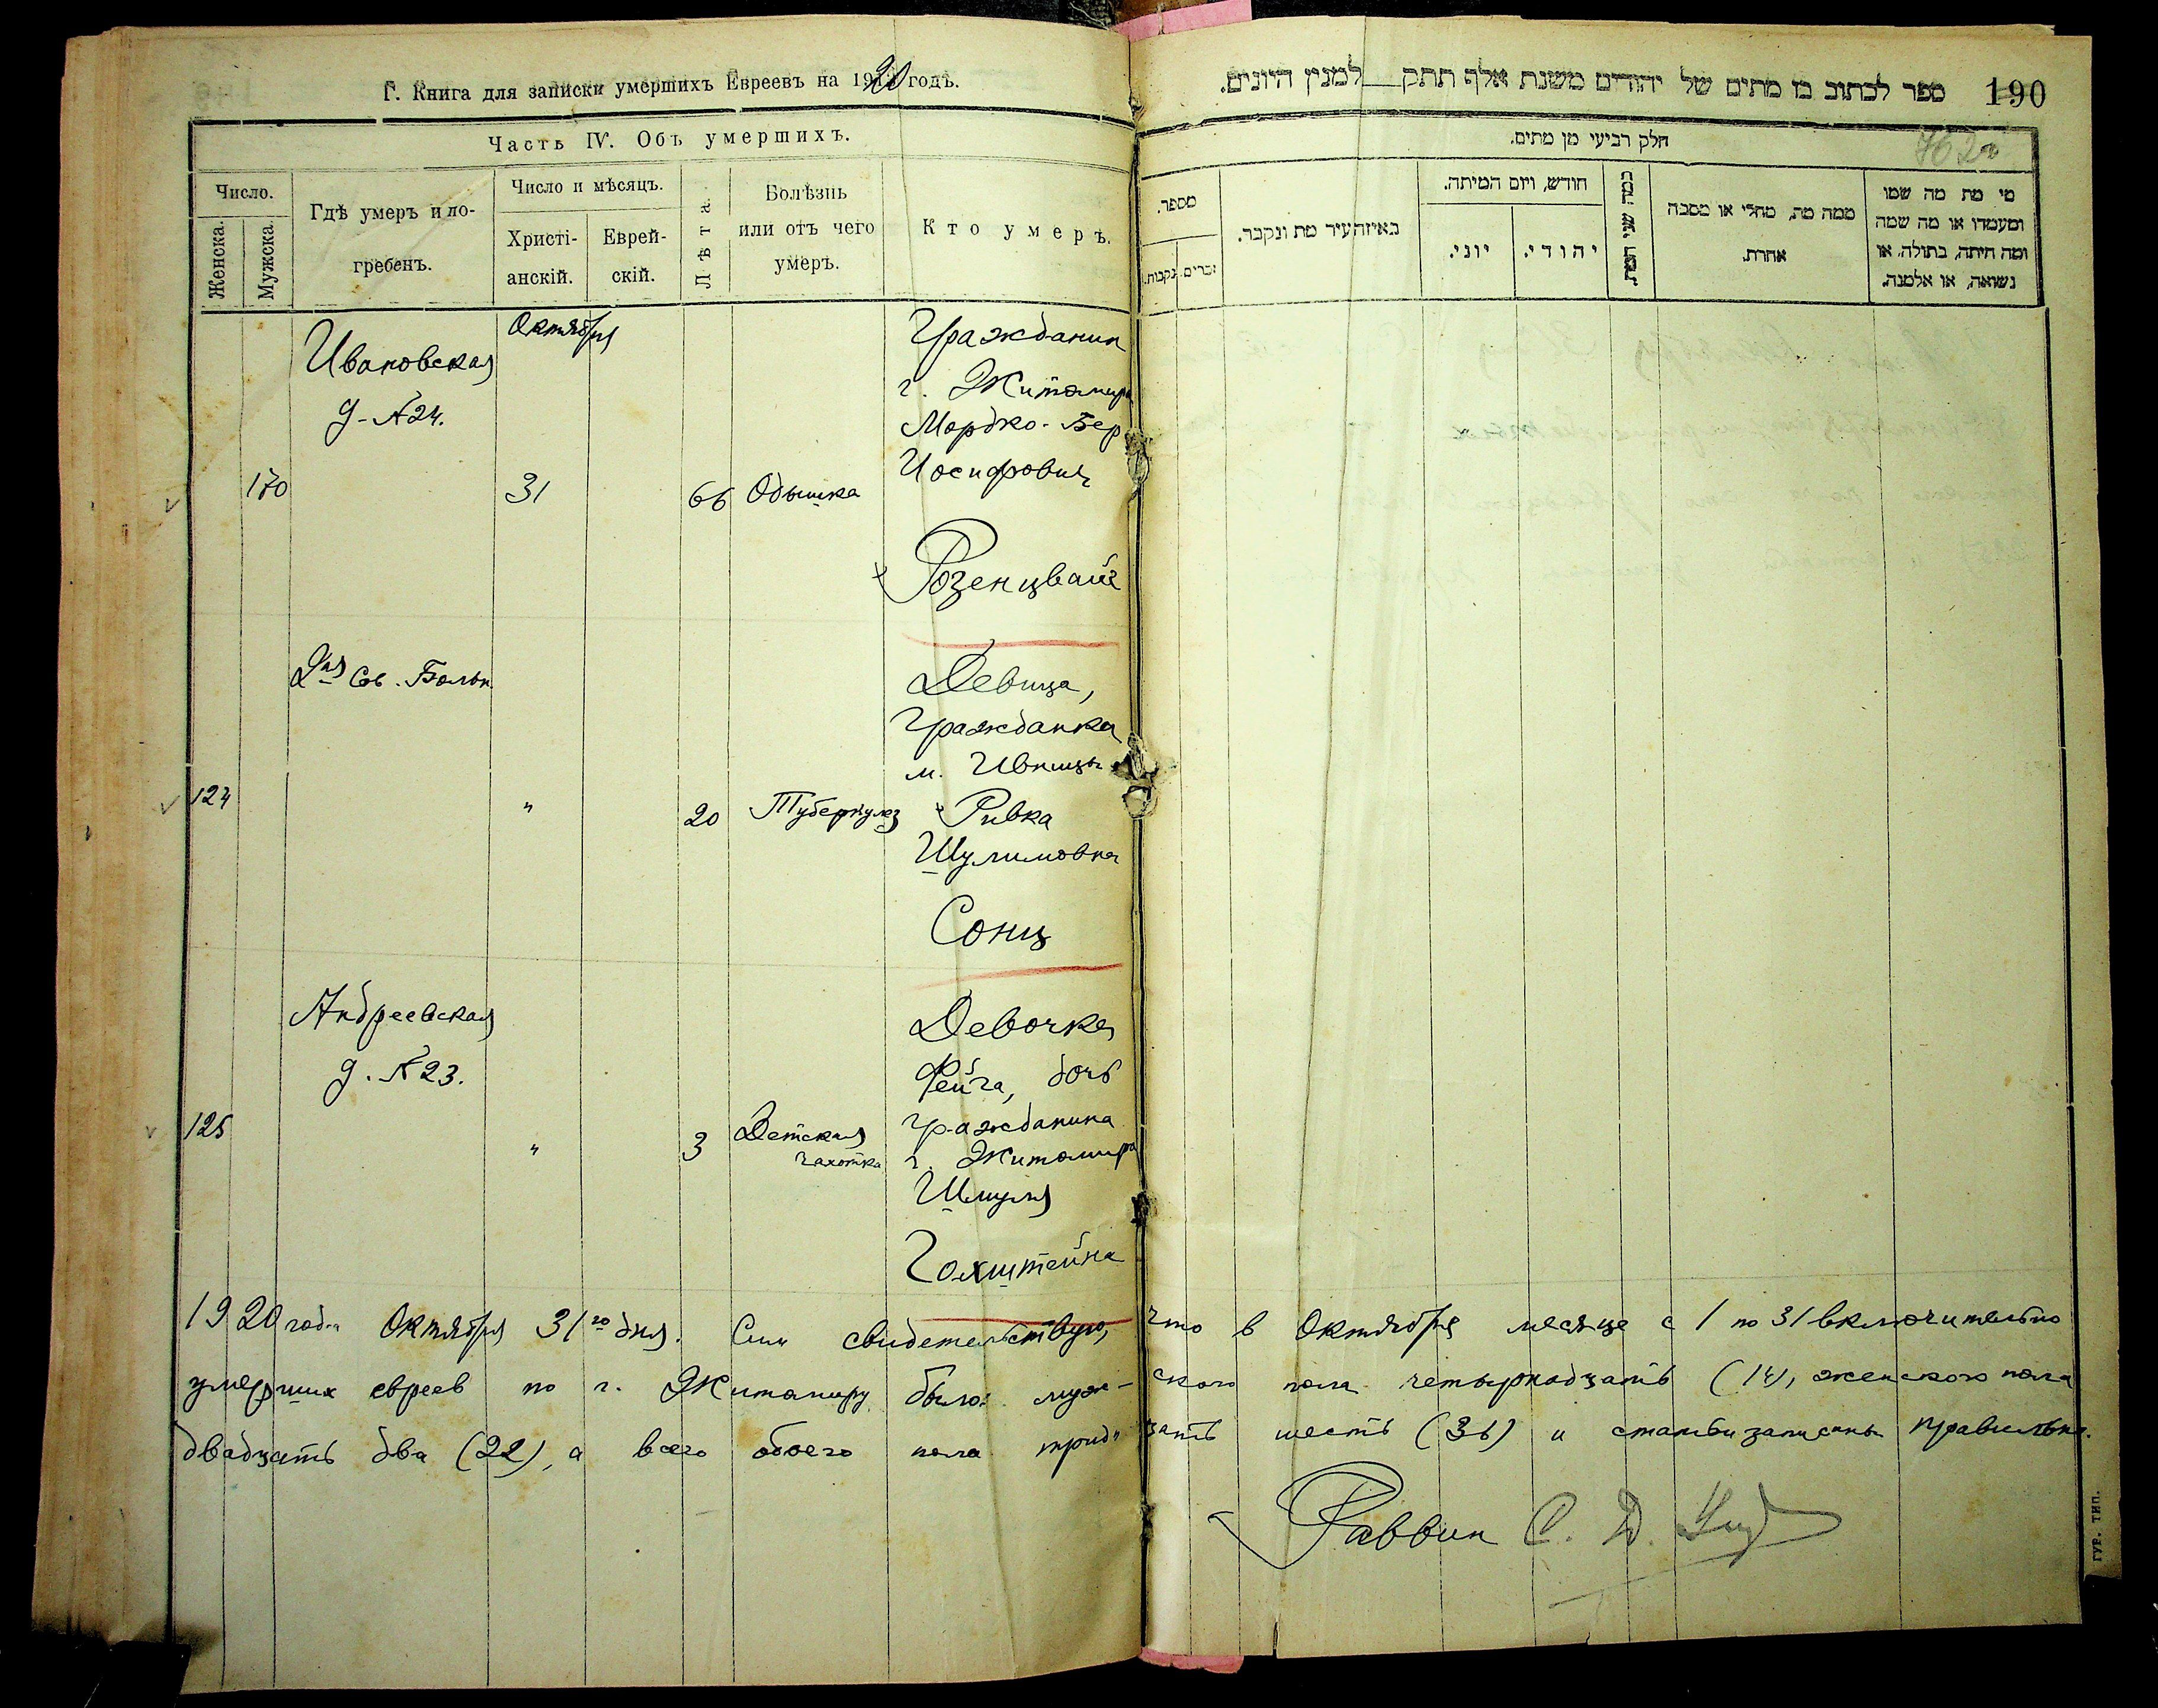 Г. Книга для записки умершихъ Евреевъ на 1920 годъ.
Часть IV. Объ умершихъ.
Число.
Женска.
Мужска.
Гдѣ умеръ и по-
гребенъ.
Число и мѣсяцъ.
Христі-
анскій.
Еврей-
скій.
Лѣта.
Болѣзнь
или отъ чего
умеръ.
Кто умеръ.
Октября
Ивановская
д. №24.
170
31
66
Одышка
Гражданин
г. Житомира
Мордко-Бер
Иосифович
Розенцвайг
Сов. Больн.
124
"
20
Туберкулез
Девица,
Гражданка
м. Ивницы
Ривка
Шулимовна
Сонц
Андреевская
д. №23.
125
"
3
Детская
чахотка
Девочка
Фейга, дочь
гражданина
г. Житомира
Шмуля
Гохштейна
ספר לכתוב בו מתים של יהודים משנת אלף תתק למנין היונים.
190
762
חלק רביעי מן מתים.
מספר.
נקבות.
זכרים.
באיזהעיר מת ונקבר.
חודש, ויום המיתה.
יוני.
יהודי.
כמה שני המת.
ממה מת, מחלי או מסבה
אחרת.
מי מת מה שמו
ומעמדו או מה שמה
ומה היתה, בתולה, או
נשואה, או אלמנה.
1920 года Октября 31го дня. Сим свидетельствую, что в Октябре месяце с 1 по 31 включительно
умерших евреев по г. Житомиру было: мужского пола четырнадцать (14), женского пола
двадцать два (22), а всего обоего пола тридцать шесть (36) и статьи записаны правильно.
Раввин С. Д.
ГУР. ТИП.